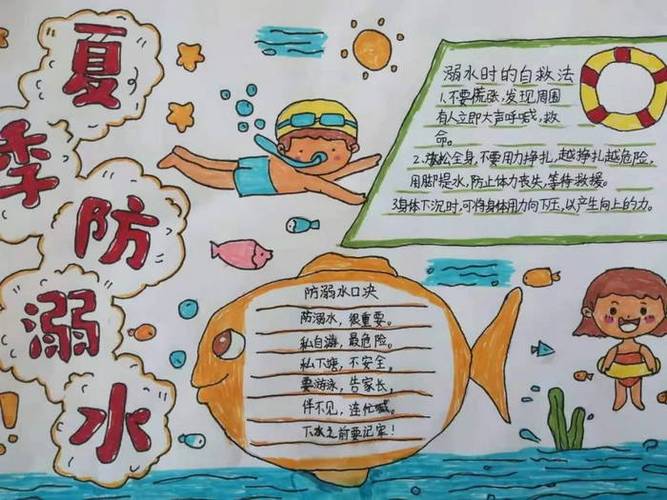 夏
季
防
溺
水
!
溺水时的自救法
1.不要慌张,发现周围
有人立即大声呼喊,救
命。
2.放松全身,不要用力挣扎,越挣扎越危险,
用脚提水,防止体力丧失,等待救援。
3身体下沉时,可将身体用力向下压,以产生向上的力。
防溺水口决
防溺水,很重要。
私自游,最危险。
私下塘,不安全。
要游泳,告家长,
伴不见,连忙喊。
下水之前要记牢!